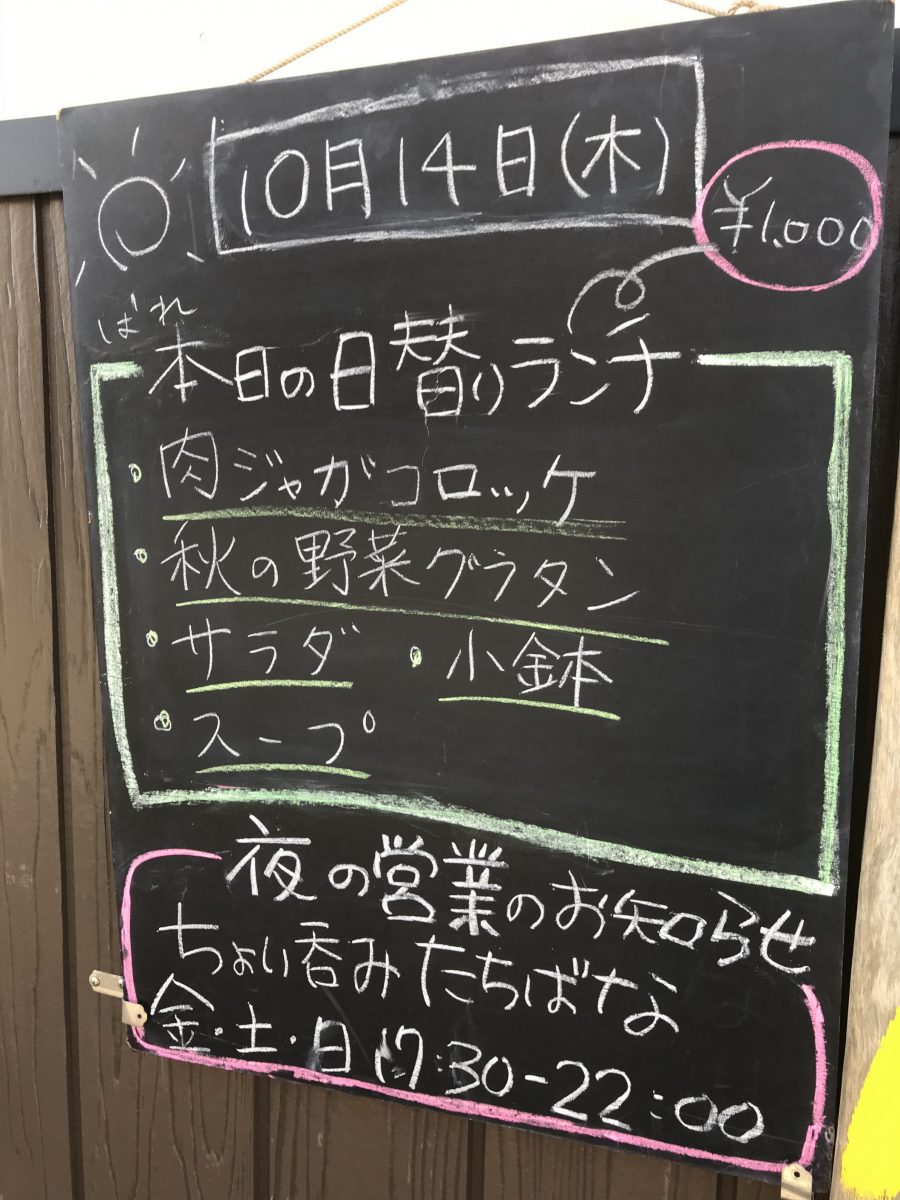 10月14日(木)
¥1,000
ばれ
本日の日替りランチ
・肉ジャガコロッケ
・秋の野菜グラタン
・サラダ ・小鉢
・スープ
夜の営業のお知らせ
ちょい呑みたちばな
金・土・日 17:30-22:00